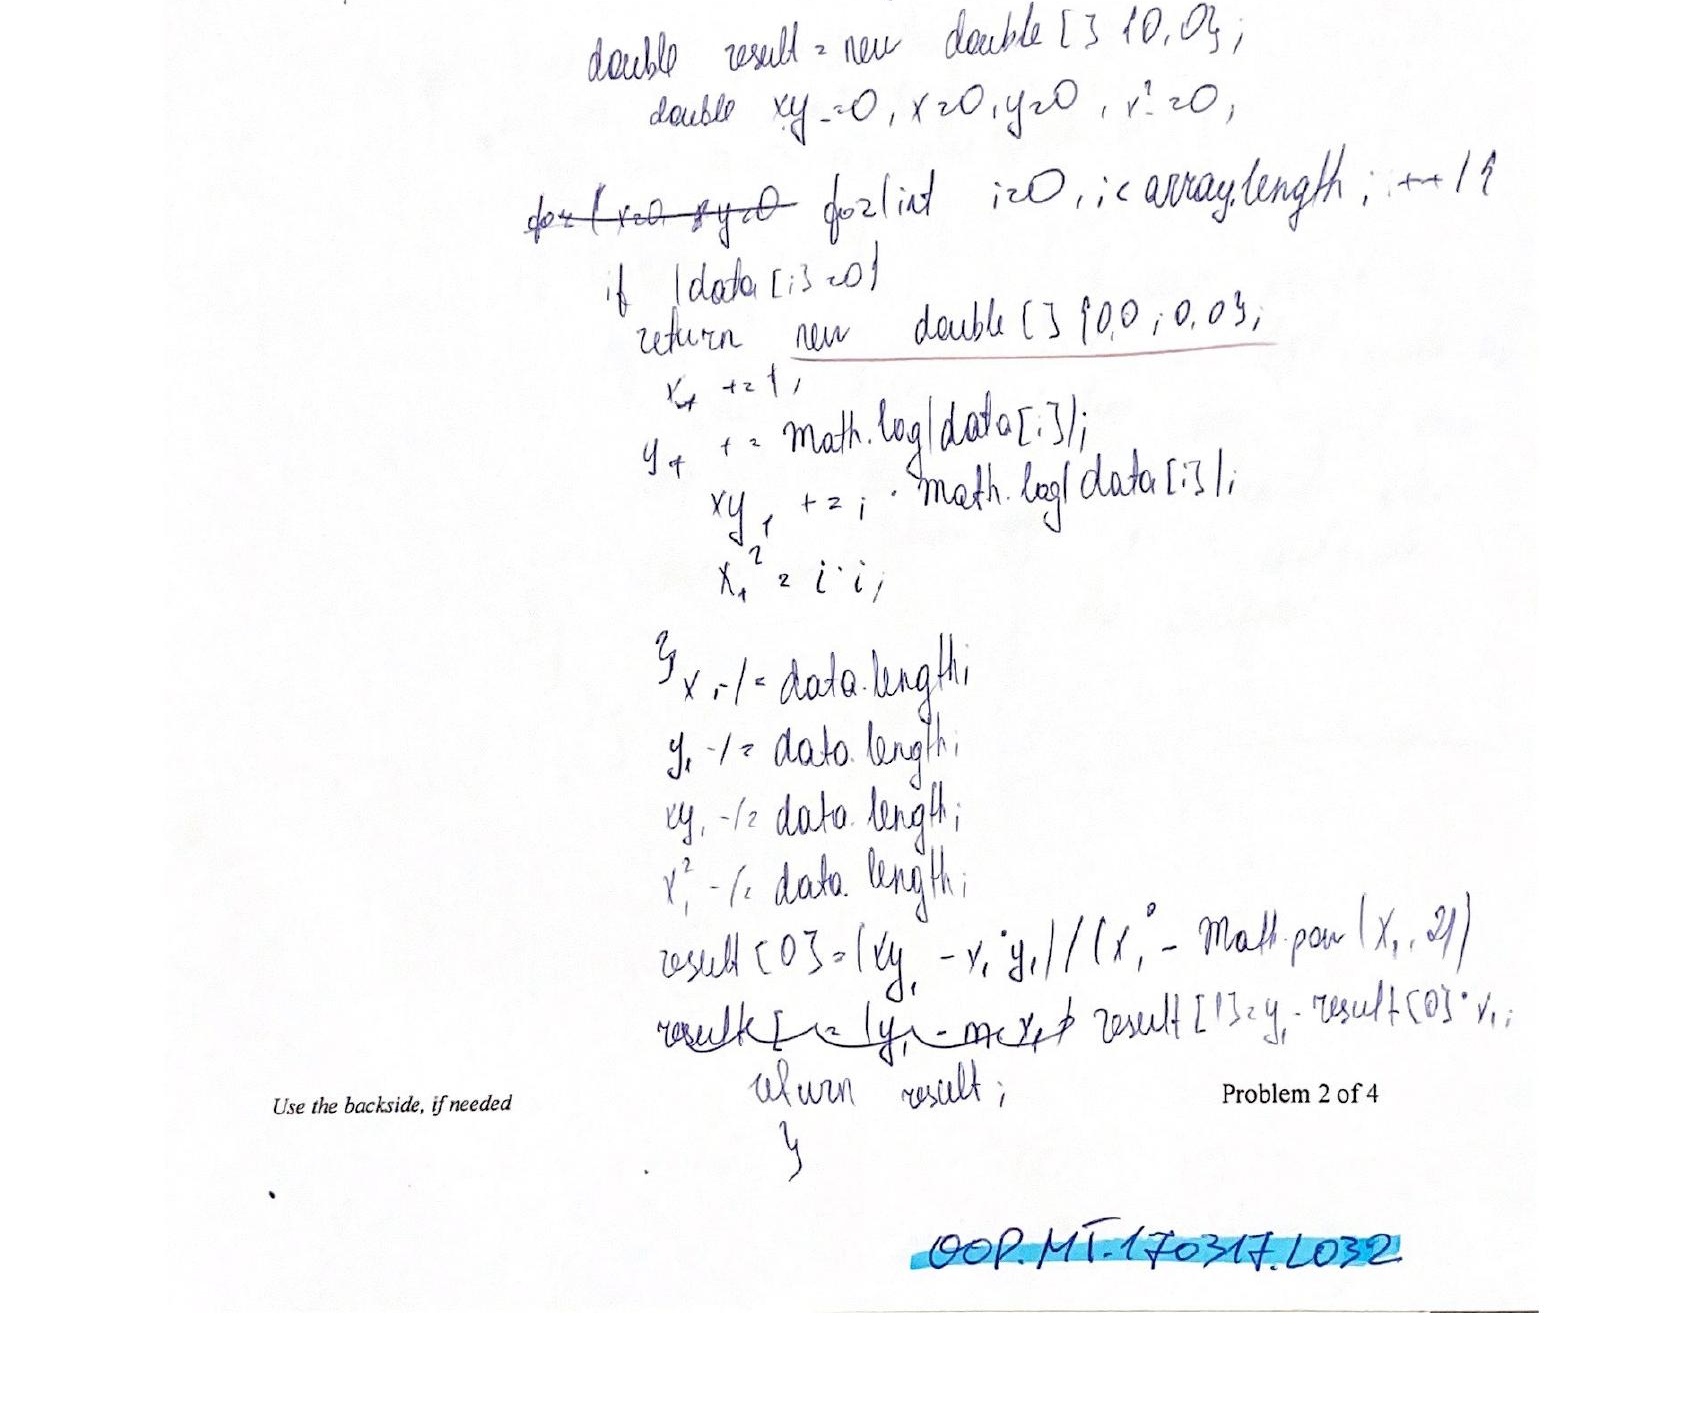 double result = new double [] {0,0};
double xy_=0, x=0, y=0, x²=0;
for ( x=0 y=0 for(int i=0, i< array.length; ++){
if (data[i]=0)
return new double [] {0,0 ; 0,0};
x₁ += 1;
y₁ += math.log(data[i]);
xy₁ += i · math.log(data[i]);
x₁² = i·i;
}
x₁ -/= data.length;
y₁ -/= data.length;
xy₁ -/= data.length;
x₁² -/= data.length;
result [0] = (xy₁ - x₁·y₁)/(x₁² - Math.pow(x₁, 2))
result [ = (y₁ - m x₁) result [1]=y₁ - result[0]·x₁;
return result;
Use the backside, if needed Problem 2 of 4
}
OOP.MT.170317.L032